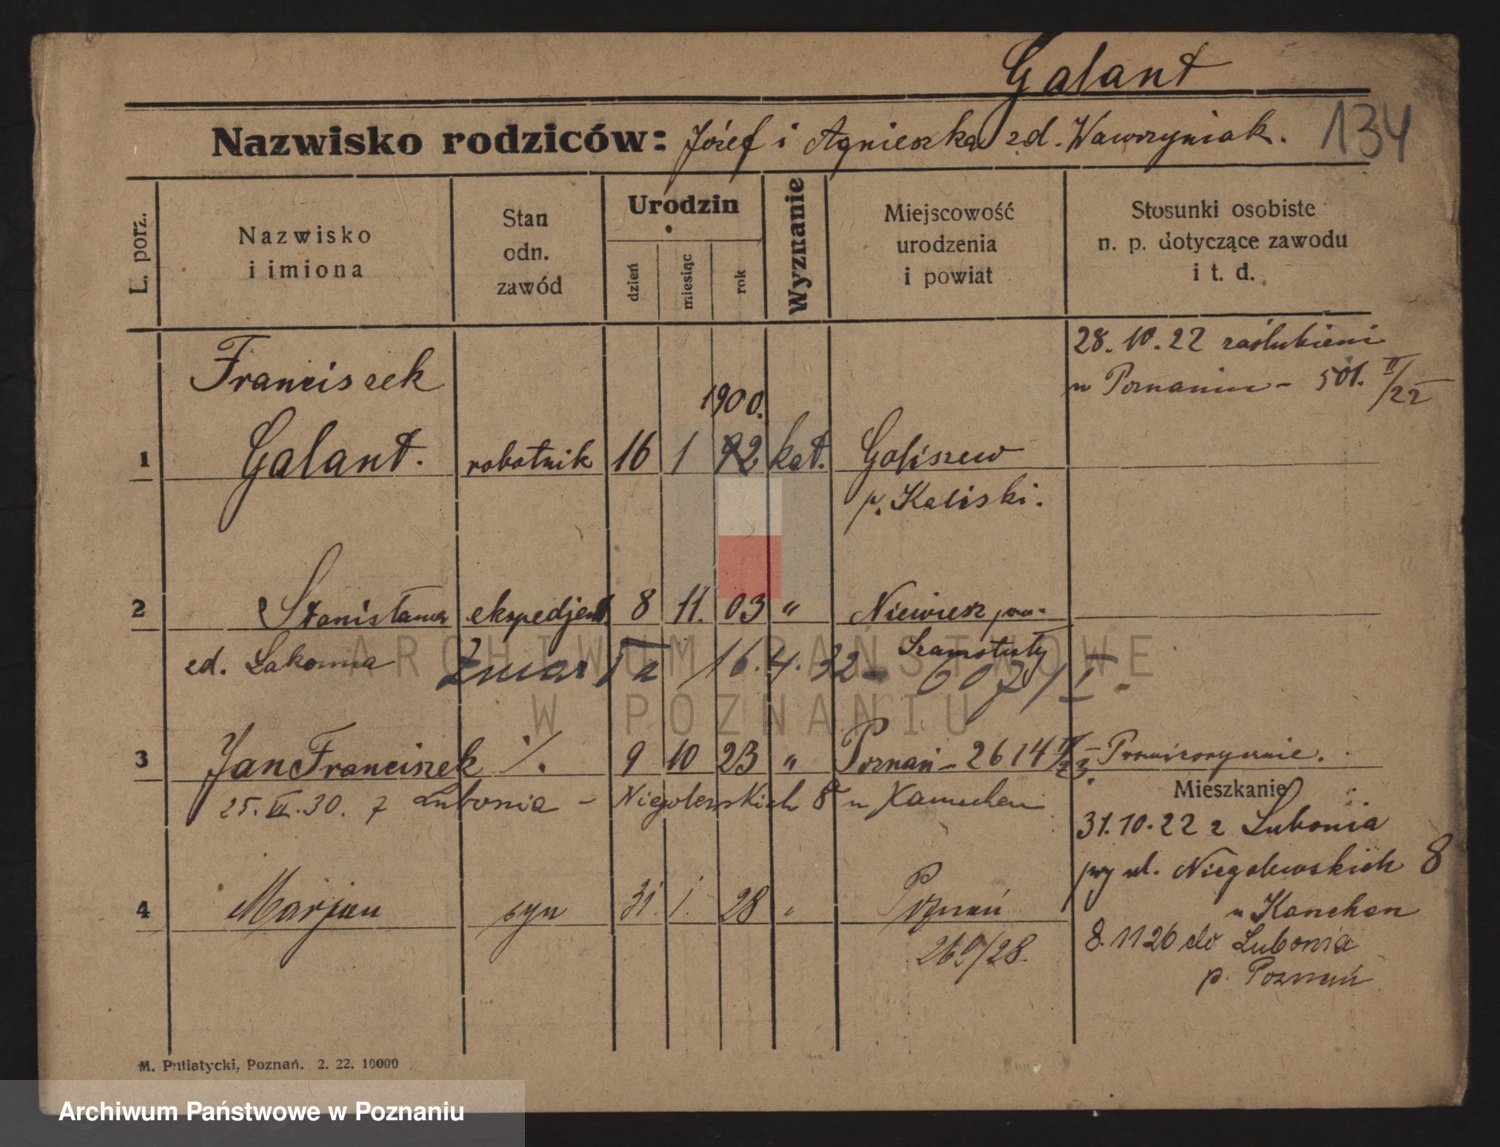 Galant
Nazwisko rodziców: Józef i Agnieszka zd. Wawrzyniak.
134
L. porz.
Nazwisko
i imiona
Stan
odn.
zawód
Urodzin
dzień
miesiąc
rok
Wyznanie
Miejscowość
urodzenia
i powiat
Stosunki osobiste
n. p. dotyczące zawodu
i t. d.
28. 10. 22 zaślubieni
w Poznaniu - 501. II/22
Franciszek
1900.
1 Galant. robotnik 16 1 92 kat. Goliszew
p. Kaliski.
2 Stanisława ekspedjent. 8 11. 03 " Niewierz pow.
zd. Łakoma Szamotuły
zmarła 16.4.32 -
3 Jan Franciszek %. 9 10 23 " Poznań - 2614
25. 30. z Lubonia - Niegolewskich 8
Mieszkanie
31.10.22 z Lubonia
przy ul. Niegolewskich 8
8.11 26 do Lubonia
p. Poznań
4 Marjan syn 31. 1. 28 " Poznań
269/28.
M. Putiatycki, Poznań. 2. 22. 10000
ARCHIWUM PAŃSTWOWE
W POZNANIU
Archiwum Państwowe w Poznaniu